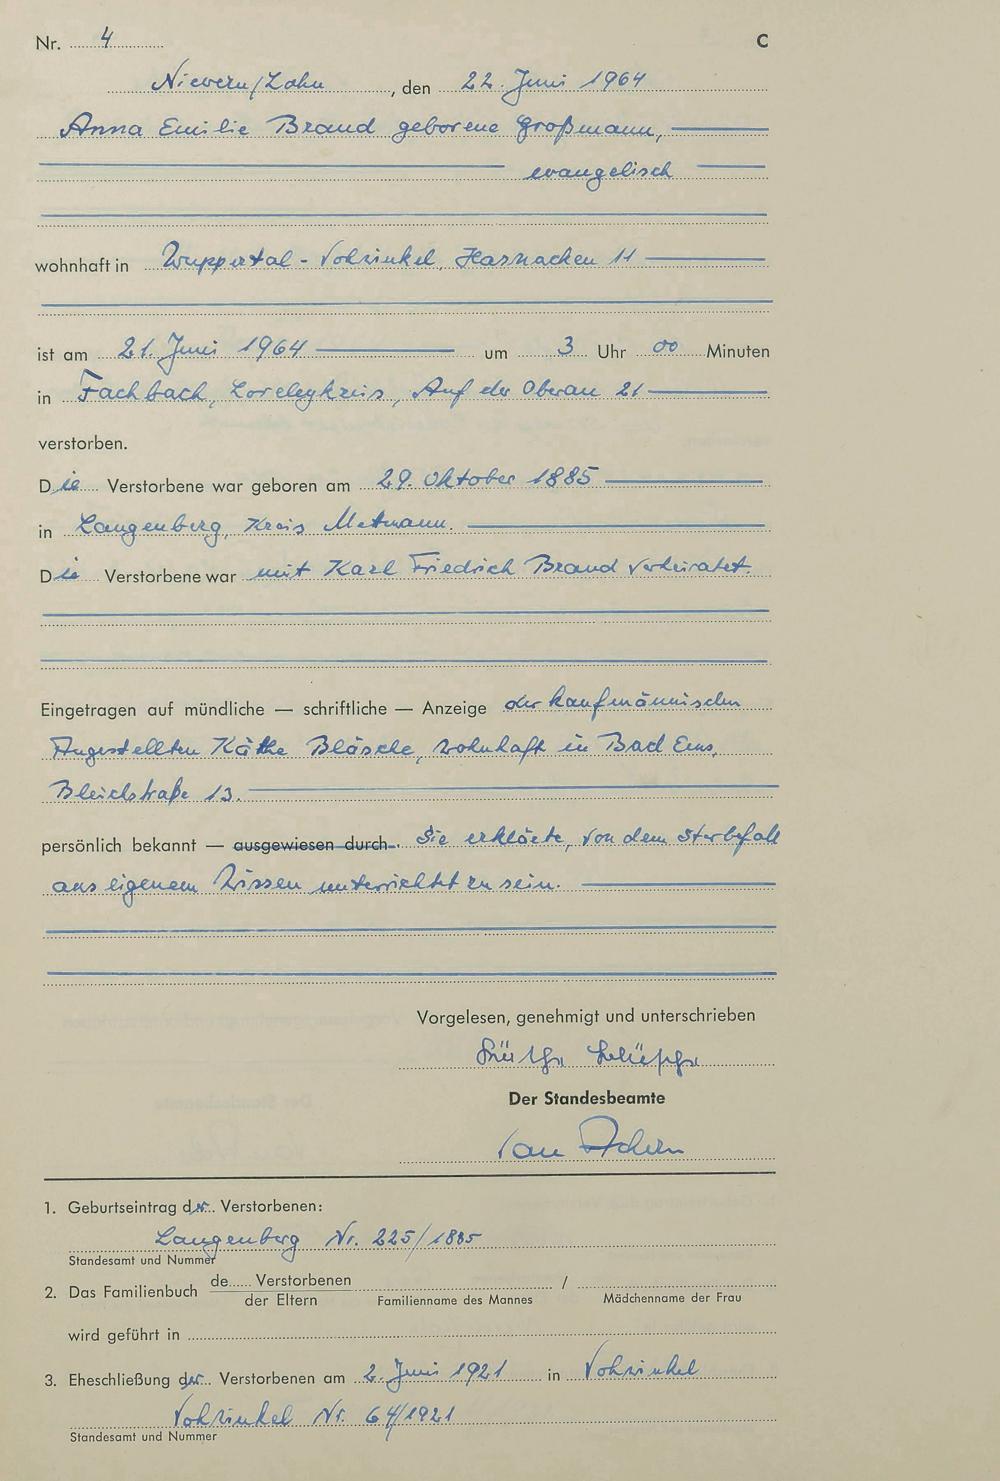 Nr. 4 C
Nievern/Lahn, den 22. Juni 1964
Anna Emilie Brand geborene Großmann,
evangelisch
wohnhaft in Wuppertal - Vohwinkel, Hasnacken 11
ist am 21. Juni 1964 um 3 Uhr 00 Minuten
in Fachbach, Loreleykreis, Auf der Oberau 21
verstorben.
Die Verstorbene war geboren am 29. Oktober 1885
in Langenberg, Kreis Metmann.
Die Verstorbene war mit Karl Friedrich Brand verheiratet.
Eingetragen auf mündliche — schriftliche — Anzeige der kaufmännischen
Angestellten Käthe Bläsche, wohnhaft in Bad Ems,
Bleichstraße 13.
persönlich bekannt — ausgewiesen durch. Sie erklärte, von dem Sterbefall
aus eigenem Wissen unterrichtet zu sein.
Vorgelesen, genehmigt und unterschrieben
Der Standesbeamte
1. Geburtseintrag der Verstorbenen:
Langenberg Nr. 225/1885
Standesamt und Nummer
2. Das Familienbuch de Verstorbenen /
der Eltern Familienname des Mannes Mädchenname der Frau
wird geführt in
3. Eheschließung der Verstorbenen am 2. Juni 1921 in Vohwinkel
Vohwinkel Nr. 64/1921
Standesamt und Nummer